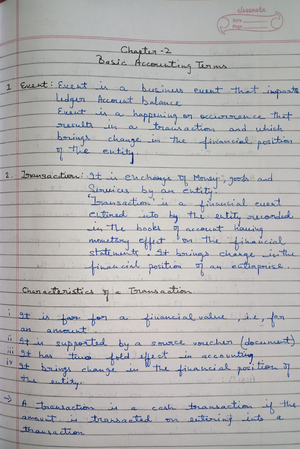 classmate
Date
Page
Chapter-2
Basic Accounting Terms
1. Event: Event is a business event that impacts
ledger Account balance
Event is a happening or occurrence that
results in a transaction and which
brings change in the financial position
of the entity.
2. Transaction: It is exchange of Money, goods and
Services by an entity.
Transaction is a financial event
entered into by the entity recorded
in the books of account having
monetary effect on the financial
statements. It brings change in the
financial position of an enterprise.
Characteristics of a Transaction
i It is for a financial value, i.e., for
an amount
ii It is supported by a source voucher (document)
iii It has two fold effect in accounting
iv It brings change in the financial position of
the entity.
→ A transaction is a cash transaction if the
amount is transacted on entering into a
transaction